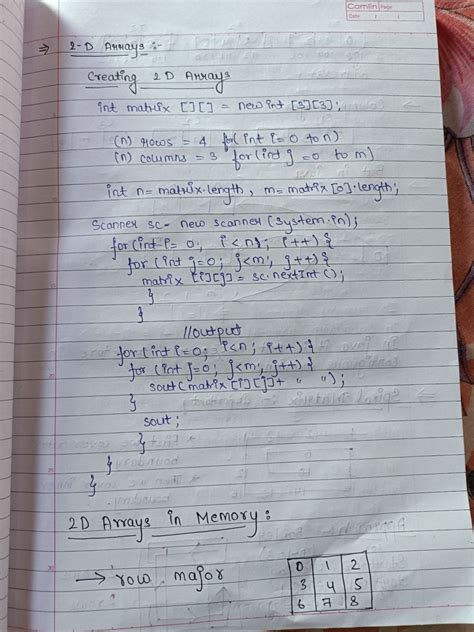 Camlin Page
Date / /
⇒ 2-D Arrays :-
Creating 2D Arrays
int matrix [][] = new int [3][3];
(n) rows = 4 for(int i=0 to n)
(n) columns = 3 for(int j=0 to m)
int n=matrix.length, m=matrix[0].length;
Scanner sc- new scanner (System.in);
for(int i= 0; i<n; i++) {
for(int j=0; j<m; j++) {
matrix [i][j] = sc.nextInt();
}
}
//output
for(int i=0; i<n; i++) {
for(int j=0; j<m; j++) {
sout(matrix[i][j]+ " ");
}
sout;
}
}
}
2D Arrays in Memory:
→ row major
0 1 2
3 4 5
6 7 8